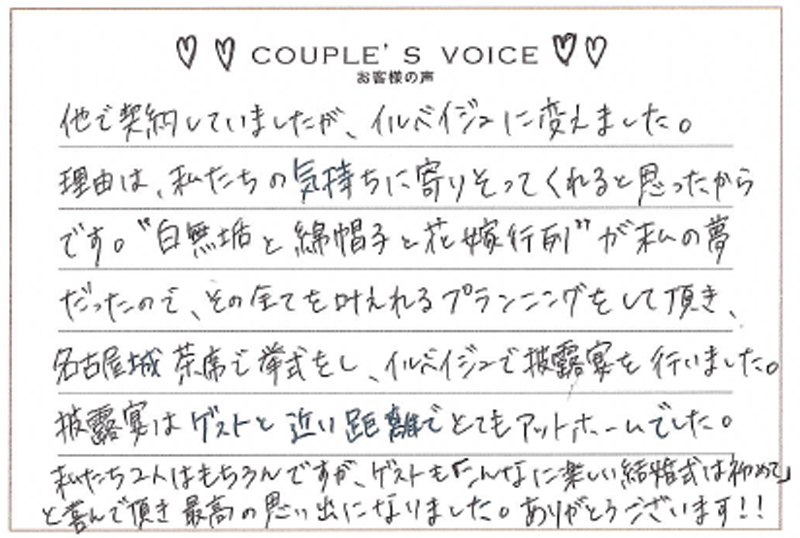 ♡ ♡ COUPLE'S VOICE ♡♡
お客様の声
他で契約していましたが、イルベイジュに変えました。
理由は、私たちの気持ちに寄りそってくれると思ったから
です。"白無垢と綿帽子と花嫁行列"が私の夢
だったので、その全てを叶えれるプランニングをして頂き、
名古屋城 茶席で挙式をし、イルベイジュで披露宴を行いました。
披露宴はゲストと近い距離でとてもアットホームでした。
私たち2人はもちろんですが、ゲストも「こんなに楽しい結婚式は初めて」
と喜んで頂き最高の思い出になりました。ありがとうございます!!